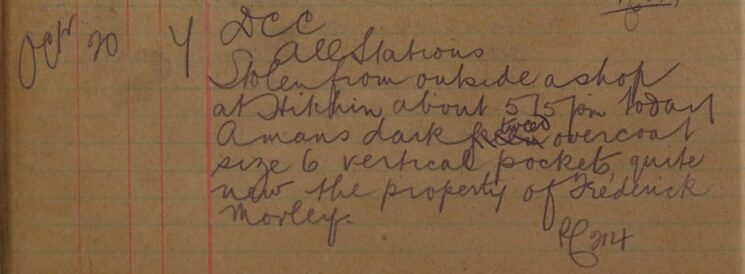 Octr 20 4 DCC
All Stations
Stolen from outside a shop
at Hitchin about 5/5 pm today
A mans dark tweed overcoat
size 6 vertical pockets, quite
new the property of Frederick
Morley.
PC 214